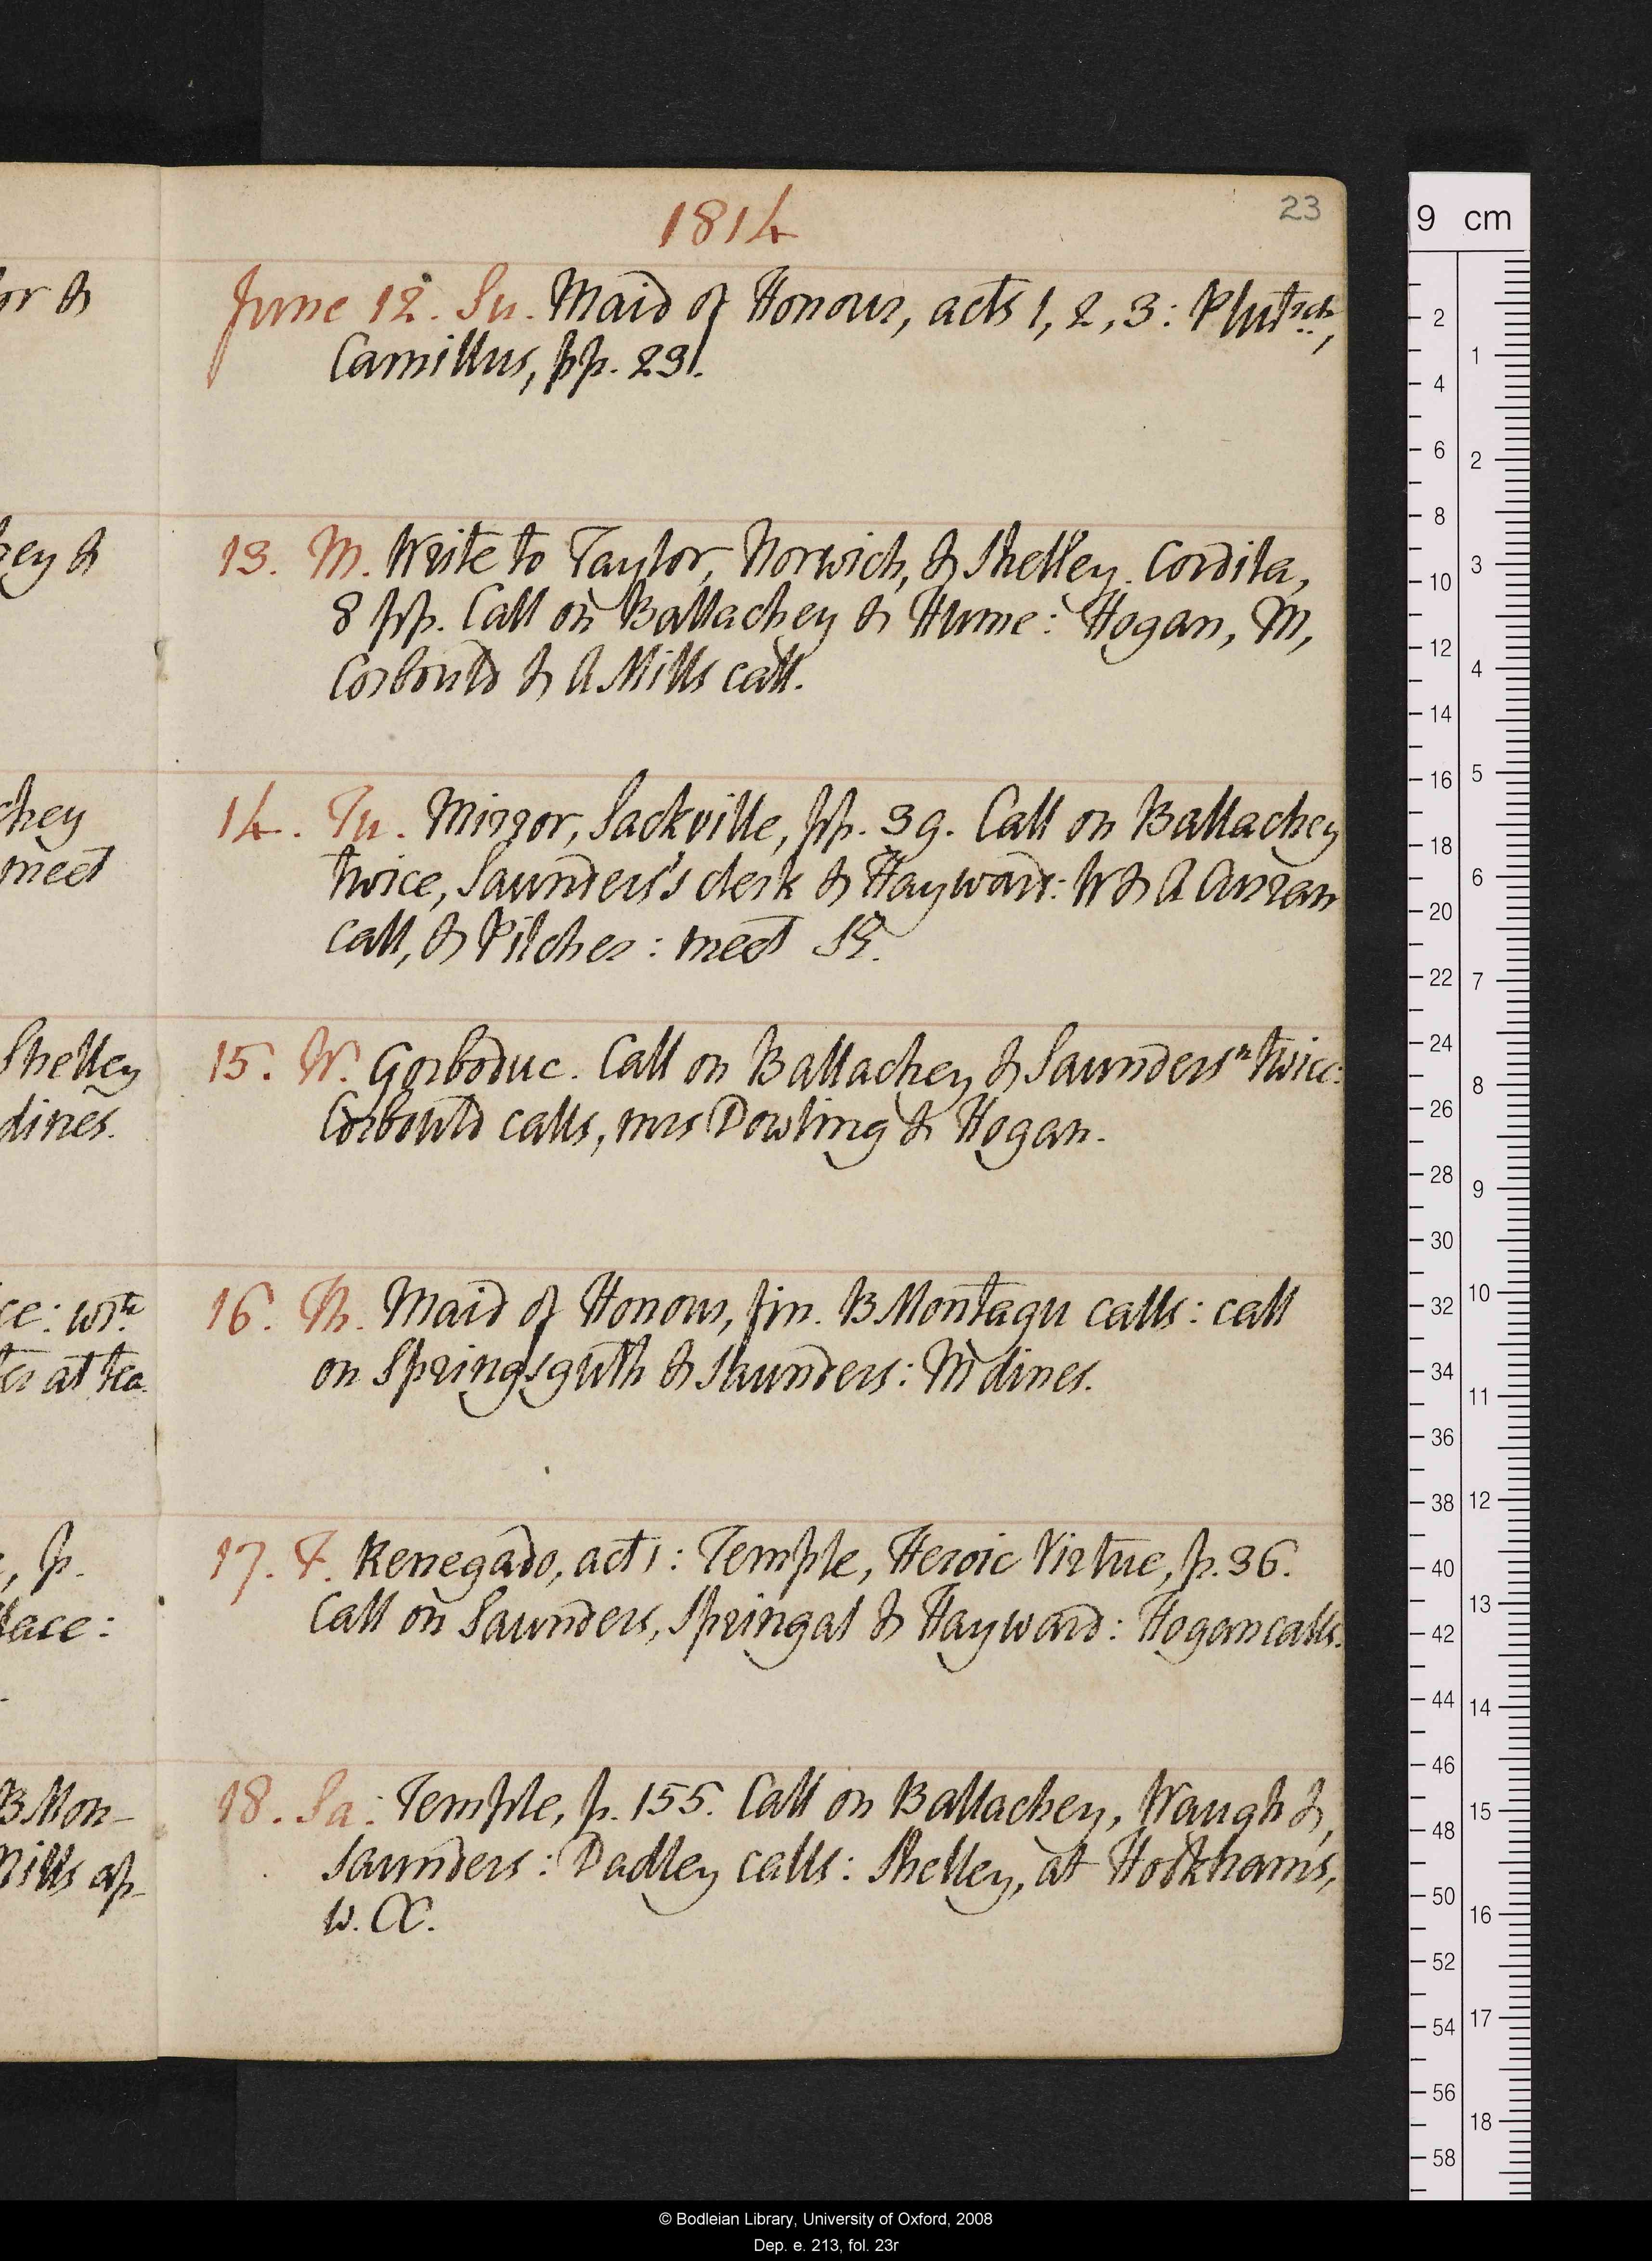 1814
23
June 12. Su. Maid of Honour, acts 1, 2, 3: Plutrch,
Camillus, pp. 29.
13. M. Write to Taylor, Norwich, & Shelley. Cordila,
8 pp. Call on Ballachey & Hume: Hogan, M,
Corbould & A Mills call.
14. Tu. Mirror, Sackville, pp. 39. Call on Ballachey
twice, Saunders's clerk & Hayward: W & A Curran
call, & Pilcher: meet
15. W. Gorboduc. Call on Ballachey & Saunders n twice:
Corbould calls, mrs Dowling & Hogan.
16. Th. Maid of Honour, fin. B Montagu calls: call
on Springsguth & Saunders: M dines.
17. F. Renegado, act 1: Temple, Heroic Virtue, p. 36.
Call on Saunders, Springal & Hayward: Hogan calls.
18. Sa. Temple, p. 155. Call on Ballachey, Waugh &
Saunders: Dadley calls: Shelley, at Hookham's,
w.
or &
ey &
chey
meet
Shelley
dines.
ce: wrte
at tea.
, p.
lace:
B Mon-
Mills ap-
9 cm
2
4
6
8
10
12
14
16
18
20
22
24
26
28
30
32
34
36
38
40
42
44
46
48
50
52
54
56
58
1
2
3
4
5
6
7
8
9
10
11
12
13
14
15
16
17
18
© Bodleian Library, University of Oxford, 2008
Dep. e. 213, fol. 23r